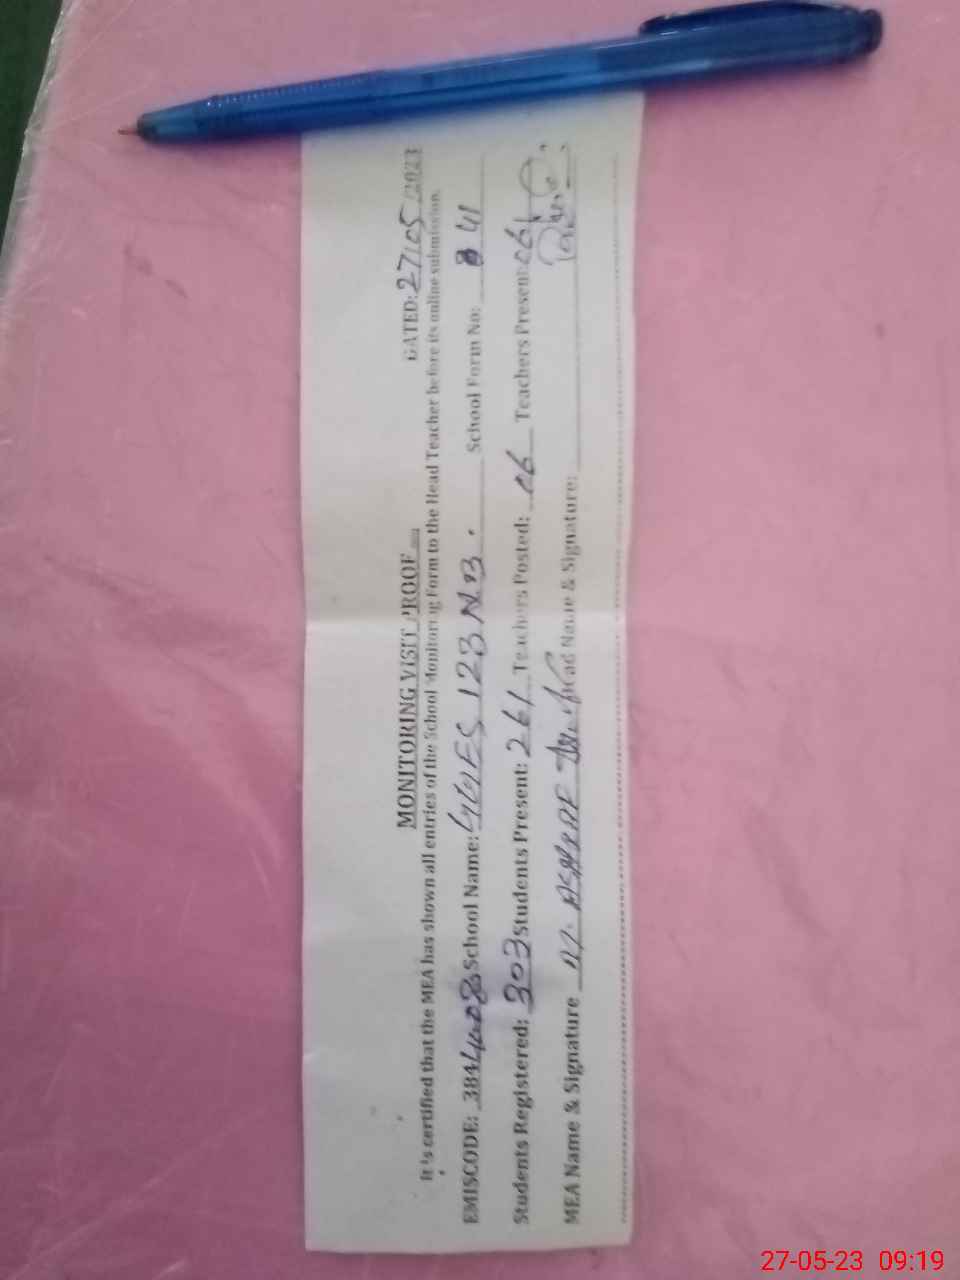 MONITORING VISIT PROOF
DATED: 27/05/2023
It is certified that the MEA has shown all entries of the School Monitoring Form to the Head Teacher before its online submission.
EMISCODE: 384 School Name: 123 NB. School Form No: 41
Students Registered: 303 Students Present: 261 Teachers Posted: 06 Teachers Present: 06
MEA Name & Signature M. ASHRAF Head Name & Signature:
27-05-23 09:19